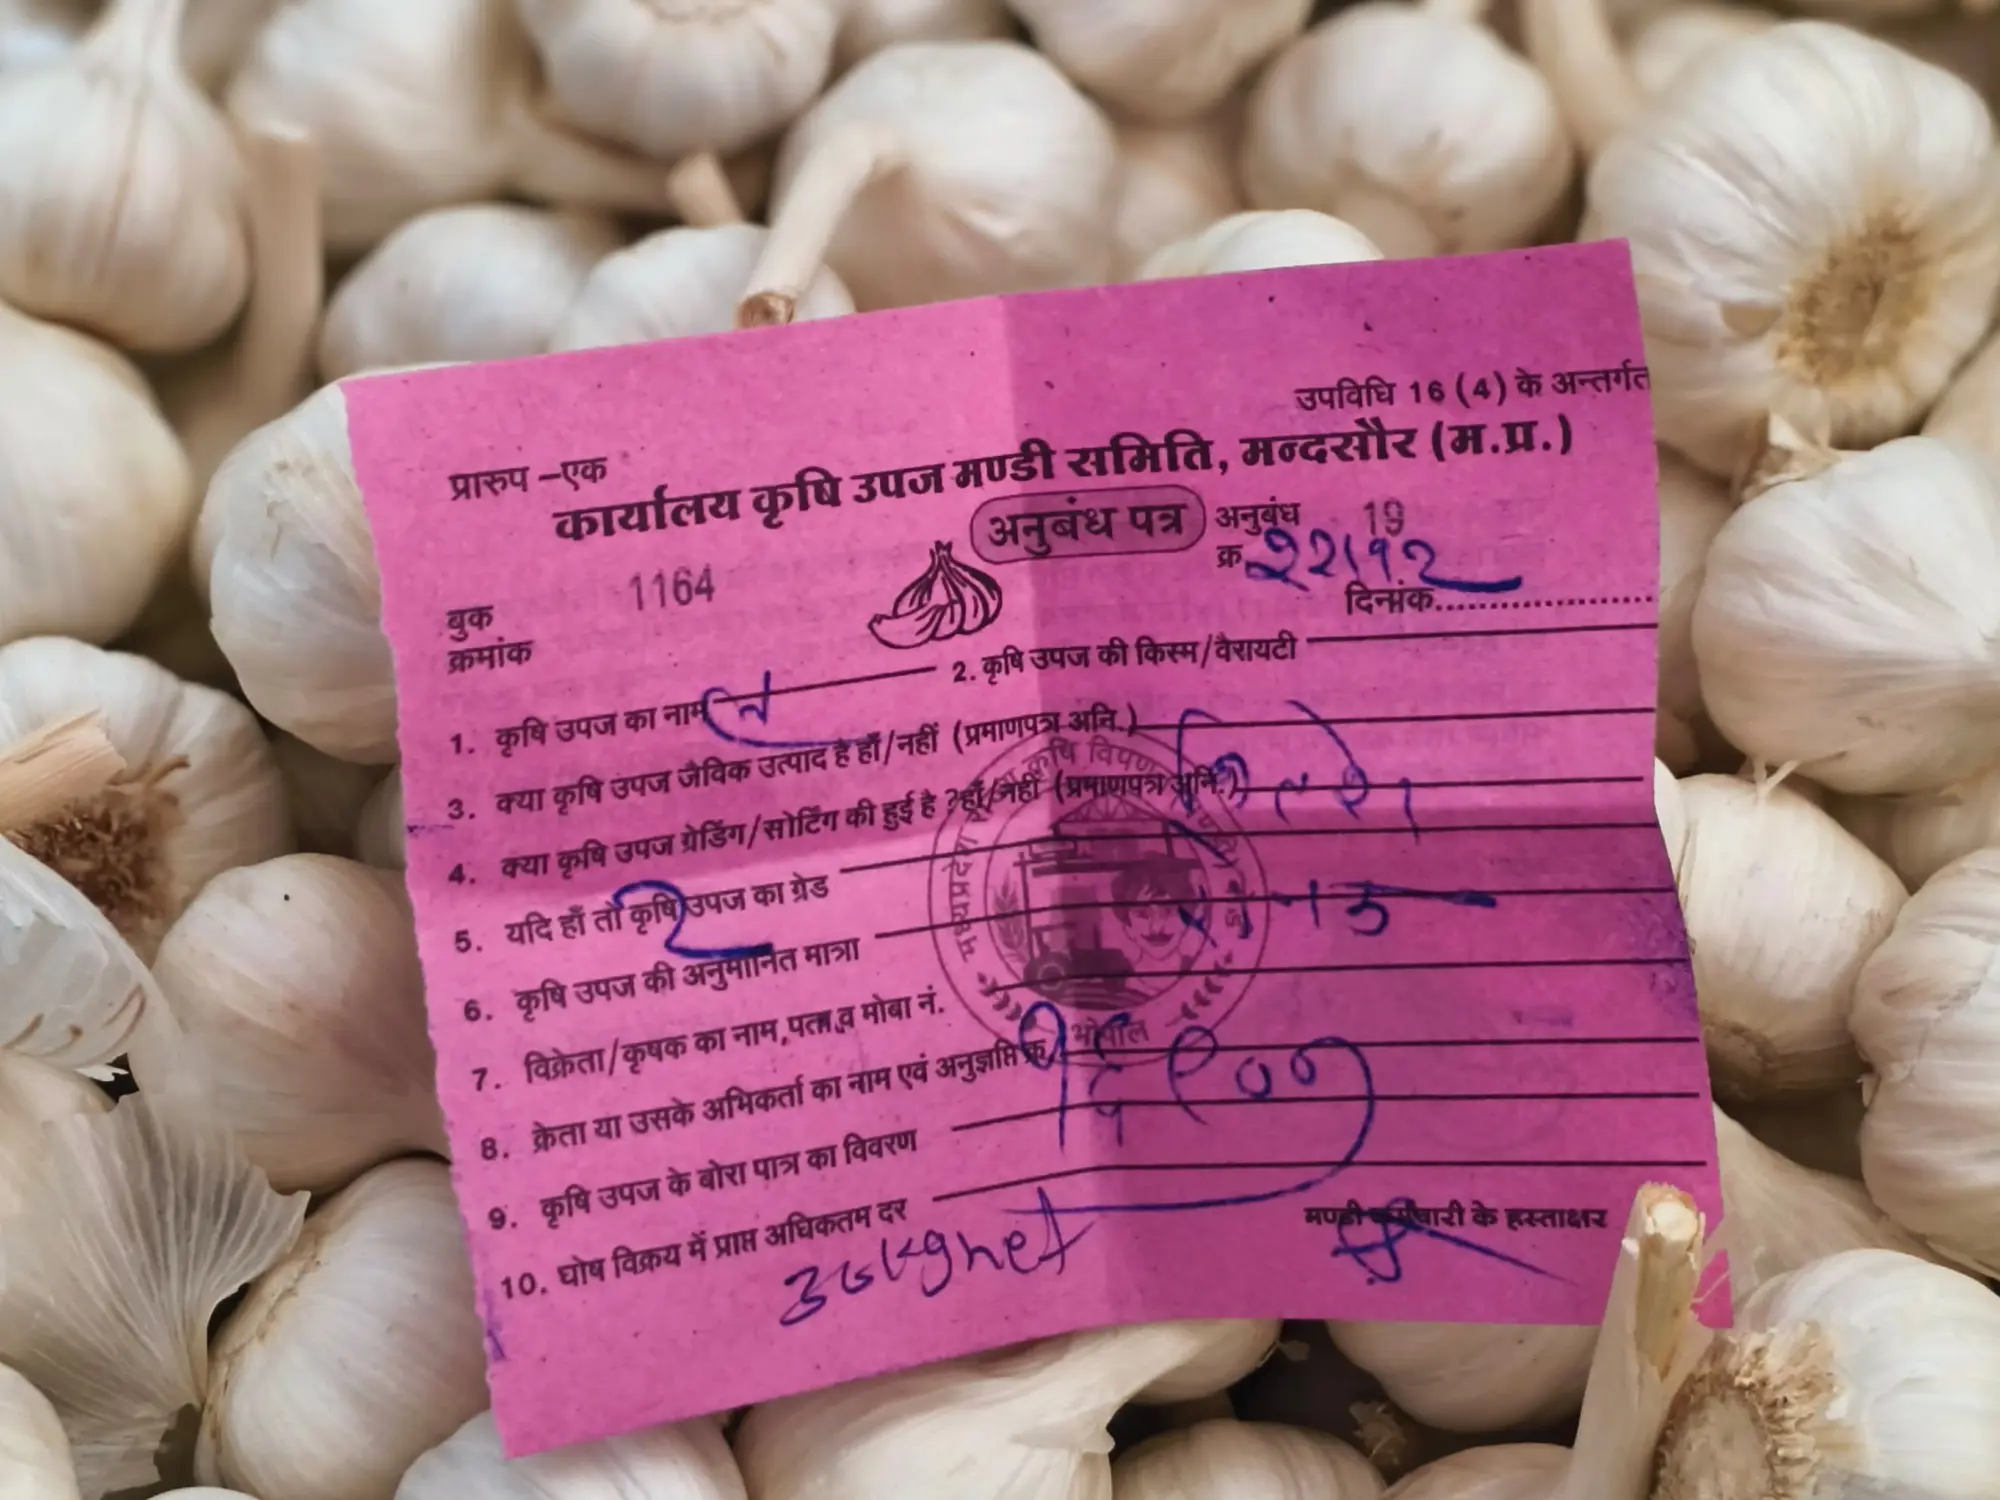 उपविधि 16 (4) के अन्तर्गत
प्रारुप –एक
कार्यालय कृषि उपज मण्डी समिति, मन्दसौर (म.प्र.)
अनुबंध पत्र
अनुबंध 19
क्र
22/12
बुक 1164
क्रमांक
दिनांक
1. कृषि उपज का नाम
2. कृषि उपज की किस्म/वैरायटी
3. क्या कृषि उपज जैविक उत्पाद है हाँ/नहीं (प्रमाणपत्र अनि.)
4. क्या कृषि उपज ग्रेडिंग/सोर्टिंग की हुई है ? हाँ/नहीं (प्रमाणपत्र अनि.)
5. यदि हाँ तो कृषि उपज का ग्रेड
6. कृषि उपज की अनुमानित मात्रा
7. विक्रेता/कृषक का नाम, पता व मोबा नं.
8. क्रेता या उसके अभिकर्ता का नाम एवं अनुज्ञप्ति क्र.
9. कृषि उपज के बोरा पात्र का विवरण
10. घोष विक्रय में प्राप्त अधिकतम दर
मण्डी कर्मचारी के हस्ताक्षर
मध्यप्रदेश
कृषि विपणन
भोपाल